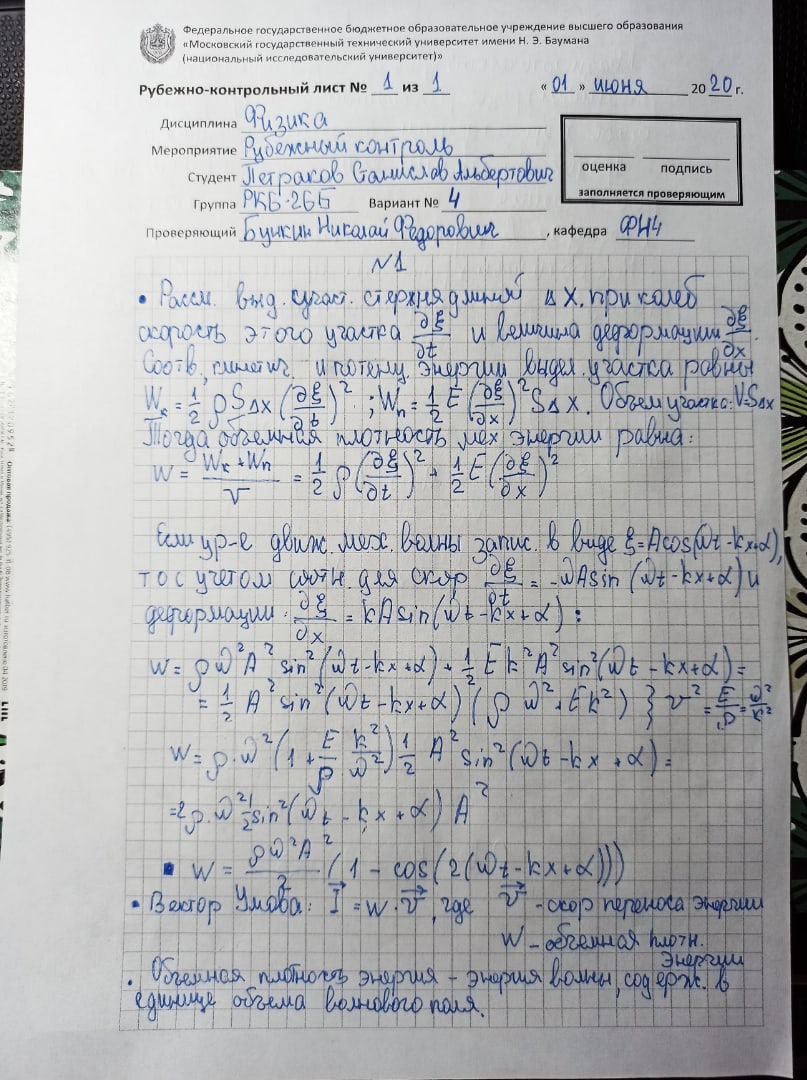 Федеральное государственное бюджетное образовательное учреждение высшего образования
«Московский государственный технический университет имени Н. Э. Баумана
(национальный исследовательский университет)»
Рубежно-контрольный лист № 1 из 1 «01» июня 2020 г.
Дисциплина Физика
Мероприятие Рубежный контроль
Студент Петраков Станислав Альбертович
Группа РКБ-26Б Вариант № 4
оценка подпись
заполняется проверяющим
Проверяющий Бункин Николай Фёдорович, кафедра ФН4
№1
• Рассм. выд. участ. стержня длиной Δx. при колеб
скорость этого участка ∂ξ/∂t и величина деформации ∂ξ/∂x.
Соотв., кинетич. и потенц. энергии выдел. участка равны
Wк = 1/2 ρSΔx(∂ξ/∂t)²; Wп = 1/2 E(∂ξ/∂x)² SΔx. Объем участка: V=SΔx
Тогда объемная плотность мех энергии равна:
w = (Wк + Wп)/V = 1/2 ρ(∂ξ/∂t)² + 1/2 E(∂ξ/∂x)²
Если ур-е движ. мех. волны запис. в виде ξ=Acos(ωt-kx+α),
то с учетом соотн. для скор ∂ξ/∂t = -ωAsin(ωt-kx+α) и
деформации: ∂ξ/∂x = kAsin(ωt-kx+α):
w = ρω²A² sin²(ωt-kx+α) + 1/2 Ek²A² sin²(ωt-kx+α) =
= 1/2 A² sin²(ωt-kx+α)(ρω² + Ek²) } v² = E/ρ = ω²/k²
w = ρ·ω²(1 + E/ρ k²/ω²) 1/2 A² sin²(ωt-kx+α) =
=2ρ·ω² 1/2 sin²(ωt-kx+α) A²
▪ w = ρω²A²/2 (1 - cos(2(ωt-kx+α)))
• Вектор Умова: I⃗ = w·v⃗, где v⃗ - скор переноса энергии
w - объемная плотн.
энергии
• Объемная плотность энергия - энергия волны, содерж. в
единице объема волнового поля.